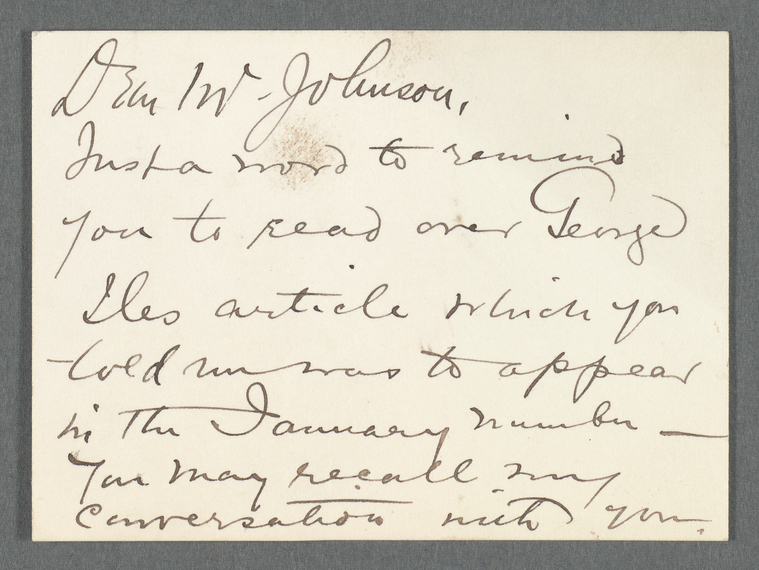 Dear Mr. Johnson,
Just a word to remind
you to read over George
Iles article which you
told me was to appear
in the January number —
You may recall my
conversation with you.